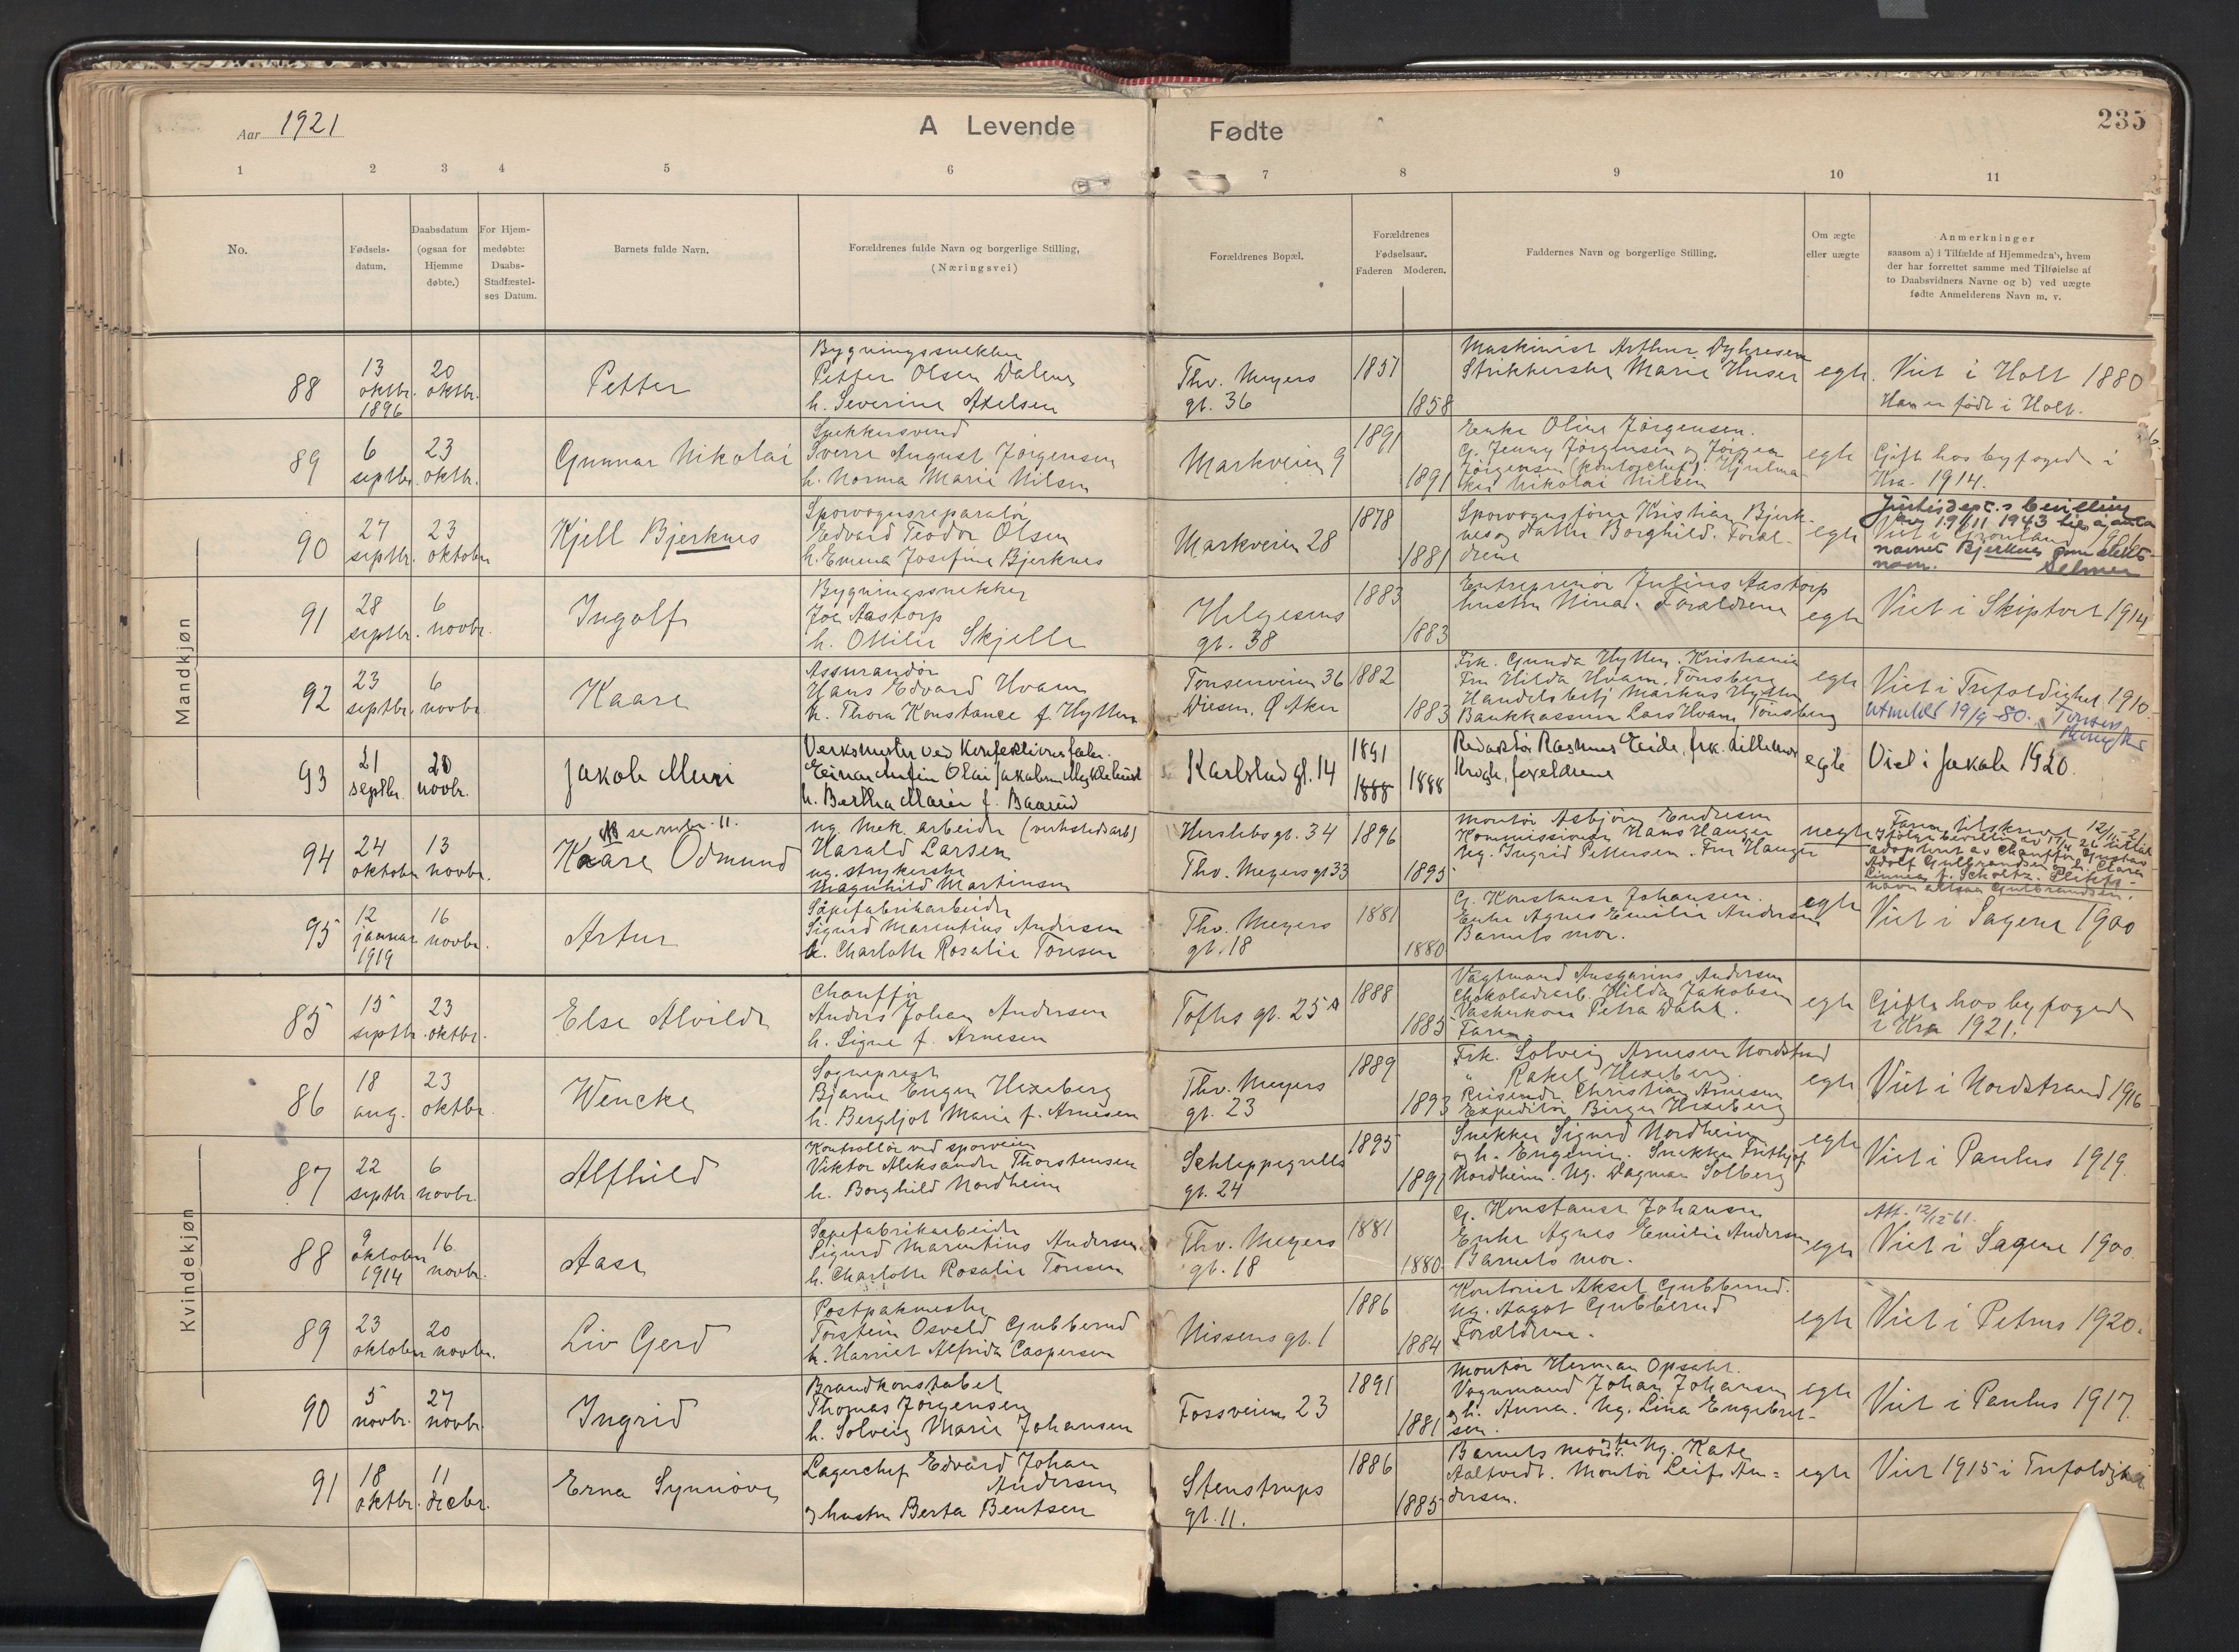 Aar 1921
A Levende
Fødte
235
1 2 3 4 5 6 7 8 9 10 11
No.
Fødsels-
datum.
Daabsdatum
(ogsaa for
Hjemme
døbte.)
For Hjem-
medøbte:
Daabs-
Stadfæstel-
ses Datum.
Barnets fulde Navn.
Forældrenes fulde Navn og borgerlige Stilling,
(Næringsvei)
Forældrenes Bopæl.
Forældrenes
Fødselsaar.
Faderen Moderen.
Faddernes Navn og borgerlige Stilling.
Om ægte
eller uægte
Anmerkninger
saasom a) i Tilfælde af Hjemmedøn's, hvem
der har forrettet samme med Tilføielse af
to Daabsvidners Navne og b) ved uægte
fødte Anmelderens Navn m. v.
Mandkjøn
88
13
oktbr.
1896
20
oktbr.
Petter
Bygningssnekker
Petter Olsen Dalene
h. Severine Axelsen
Thv. Meyers
gt. 36
1857
1858
Maskinist Arthur Dyhresen
Strikkerske Marie Huser
egte
Viet i Holt 1880
Han er født i Holt.
89
6
septbr.
23
oktbr.
Gunnar Nikolai
Snekkersvend
Sverre August Jørgensen
h. Norma Marie Nilsen
Markveien 9
1891
1891
Enke Oline Jørgensen.
G. Jenny Jørgensen og Jørgen
Jørgensen (kontorchef). Hjulma-
ker Nikolai Nilsen
egte
Gift hos byfoged i
Kra. 1914.
90
27
septbr.
23
oktober
Kjell Bjerknes
Sporvognsreparatør
Edvard Teodor Olsen
h. Emma Josefine Bjerknes
Markveien 28
1878
1881
Sporvognsfører Kristian Bjerk-
nes og datter Borghild. Foræl-
drene
egte
Justisdept.s bevilling
av 19/11 1943 til å anta
Viet i Grønland
navnet Bjerknes som slekts-
navn. Selmer
91
28
septbr.
6
novbr.
Ingolf
Bygningssnekker
Joe Aastorp
h. Ottilie Skjelle
Helgesens
gt. 38
1883
1883
Entreprenør Julius Aastorp
hustru Nina. Forældrene
egte
Viet i Skiptvet 1914
92
23
septbr.
6
novbr.
Kaare
Assurandør
Hans Edvard Hvam
h. Thora Konstance f. Hytten
Tonsenveien 36
Disen, Ø Aker
1882
1883
Frk. Gunda Hytten. Kristiania
Fru Hilda Hvam, Tønsberg
Handelsbetj Markus Hytten
Bankkasserer Lars Hvam, Tønsberg
egte
Viet i Trefoldighet 1910.
Utmeldt 19/9-80.
93
21
septbr.
20
novbr.
Jakob Muri
Verksmester ved
Einar Anton Olai Jakobsen Myklebust
h. Bertha Marie f. Baarud
Karlstad gt. 14
1891
1888
1888
Redaktør Rasmus Eide, frk. Lillemor
Krogh, foreldrene
egte
Viet i Jakob 1920.
94
24
oktober
13
novbr.
NB se rubr. 11.
Kaare Odmund
ug. mek. arbeider (verkstedsarb)
Harald Larsen
ug. strykerske
Magnhild Martinsen
Herslebs gt. 34
Thv. Meyers gt 33
1896
1895
Montør Asbjørn Endresen
Kommissionær Hans Hanger
Ug. Ingrid Pettersen. Fru Hanger
uegte
Faren utskrevet 12/11-21
Ifølge bevilling av 17/4 26 er
adoptert av chauffør Gustav
Adolf Gulbrandsen og h. Clara
Linnea f. Scholtz. Slekts-
navn altsaa Gulbrandsen.
95
12
januar
1919
16
novbr.
Artur
Sæpefabrikarbeider
Sigurd Marentius Andersen
h. Charlotte Rosalie Toresen
Thv. Meyers
gt. 18
1881
1880
G. Konstanse Johansen.
Enke Agnes Emilie Andersen
Barnets mor.
egte
Viet i Sagene 1900
Kvindekjøn
85
15
septbr.
23
oktbr.
Else Alvilde
Chauffør
Anders Johan Andersen
h. Signe f. Arnesen
Toftes gt. 25 A
1888
1885
Vagtmand Ansgarius Andersen
Chokoladearb. Hilda Jakobsen
Vaskerkone Petra Dahl.
Faren
egte
Gifte hos byfoged
i Kra 1921.
86
18
aug.
23
oktbr.
Wencke
Sogneprest
Bjarne Eugen Hexeberg
h. Bergljot Marie f. Arnesen
Thv. Meyers
gt. 23
1889
1893
Frk. Solveig Arnesen Nordstrand
" Rakel Hexeberg.
Reisende Christian Arnesen
Expeditør Birger Hexeberg
egte
Viet i Nordstrand 1916
87
22
septbr
6
novbr.
Alfhild
Kontrollør ved sporveien
Viktor Aleksander Thorstensen
h. Borghild Nordheim
Schleppegrells
gt. 24
1895
1891
Snekker Sigurd Nordheim
og h. Eugenie. Snekker Frithjof
Nordheim. Ug. Dagmar Solberg
egte
Viet i Paulus 1919.
88
9
oktober
1914
16
novbr.
Aase
Sæpefabrikarbeider
Sigurd Marentius Andersen
h. Charlotte Rosalie Toresen
Thv. Meyers
gt. 18
1881
1880
G. Konstanse Johansen
Enke Agnes Emilie Andersen
Barnets mor.
egte
Att. 12/12-61.
Viet i Sagene 1900.
89
23
oktober
20
novbr.
Liv Gjerd
Postpakmester
Torstein Osvald Gubberud
h. Harriet Alfrida Caspersen
Nissens gt. 1
1886
1884
Kontorist Aksel Gubberud.
Ug. Aagot Gubberud
Forældrene.
egte
Viet i Petrus 1920.
90
5
novbr.
27
novbr.
Ingrid
Brandkonstabel
Thomas Jørgensen
h. Solveig Marie Johansen
Fossveien 23
1891
1881
Montør Herman Opsahl.
Vognmand Johan Johansen
og h. Anna. Ug. Lina Engebret-
sen.
egte
Viet i Paulus 1917.
91
18
oktbr.
11
decbr.
Erna Synnøve
Lagerchef Edvard Johan
Andersen
og hustru Berta Bentsen
Stenstrups
gt. 11.
1886
1885
Barnets mor. Ug. Kate
Aaltvedt. Montør Leif An=
dersen.
egte
Viet 1915 i Trefoldighet